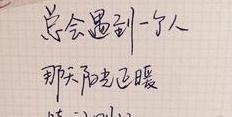 总会遇到一个人
那天阳光正暖